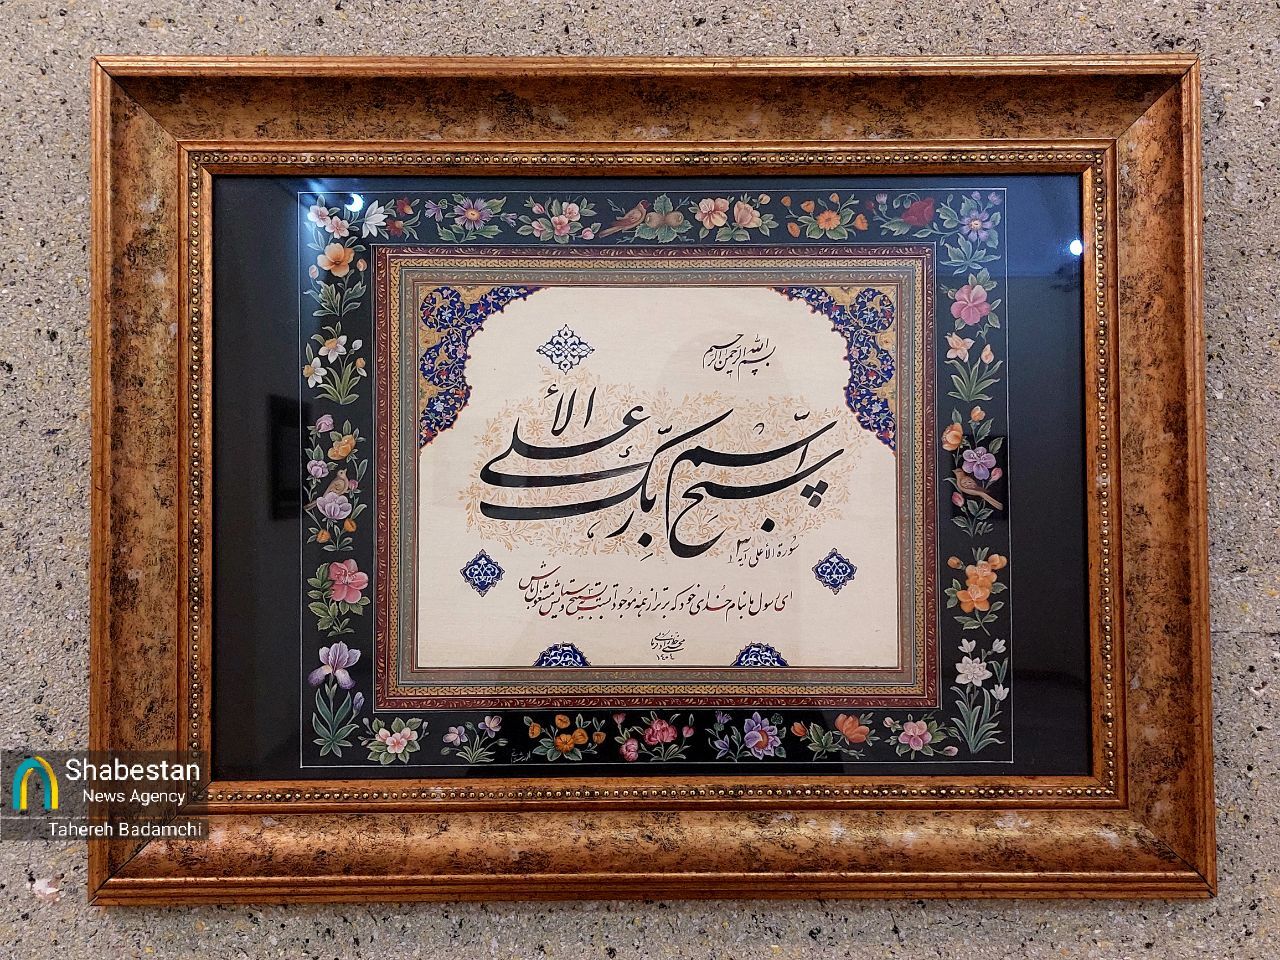 بسم الله الرحمن الرحیم
سبّح اسم ربّک الأعلی
سورة الأعلی آیه
ای رسول ما بنام خدای خود که برتر از همه موجود است به تسبیح و ستایش مشغول باش
Shabestan
News Agency
Tahereh Badamchi